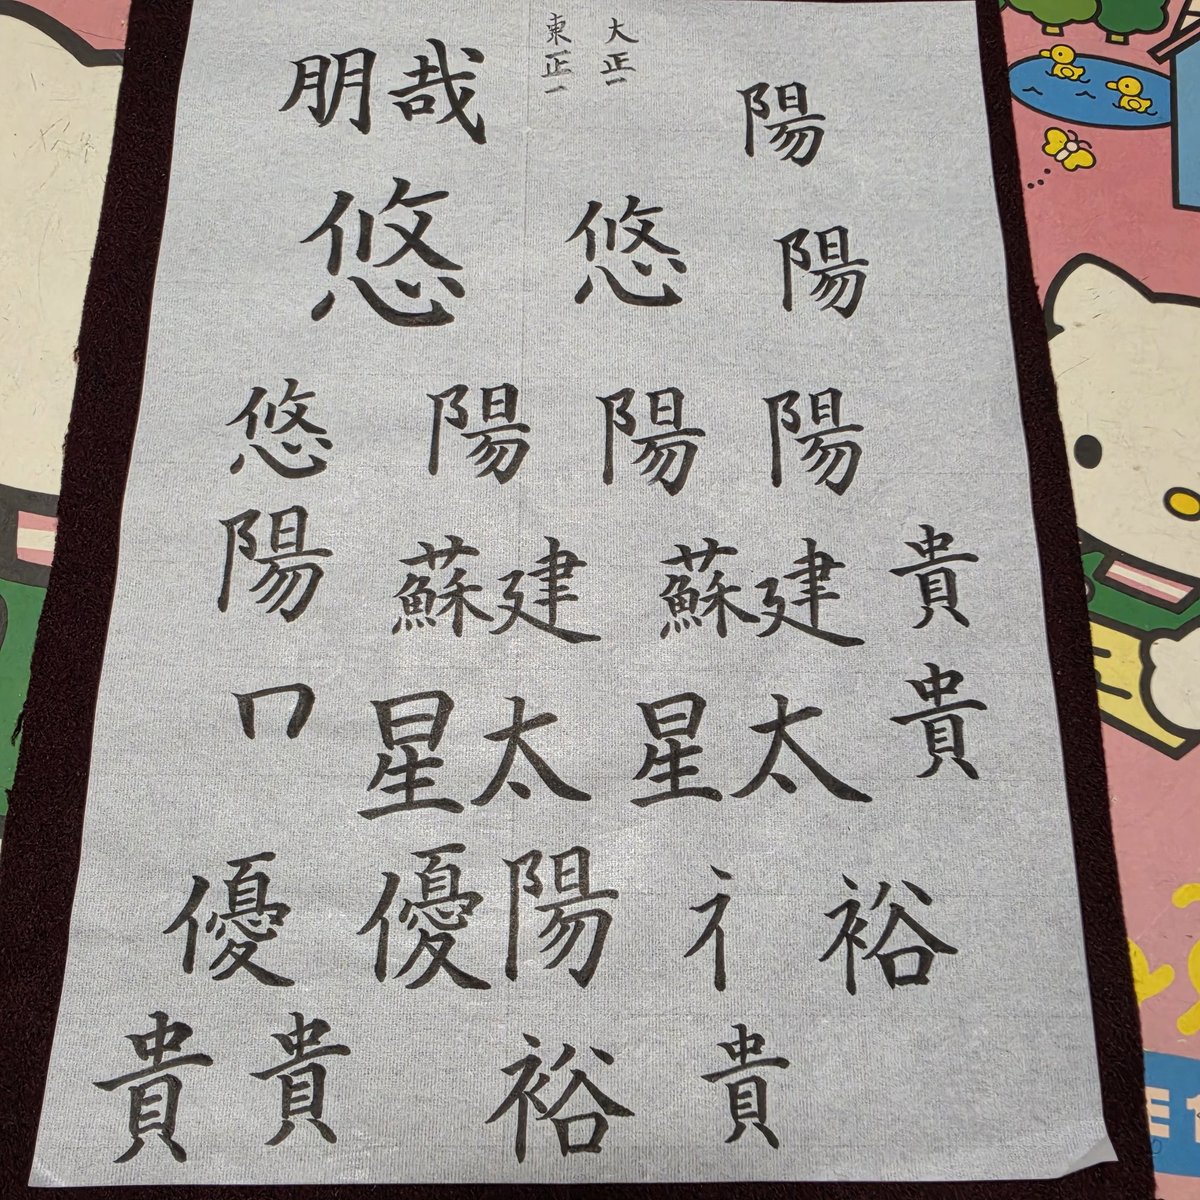 大正一
東正一
朋哉 陽
悠 悠 陽
悠 陽 陽 陽
陽 蘇建 蘇建 貴
星太 星太 貴
優 優陽 裕
貴 貴 裕 貴